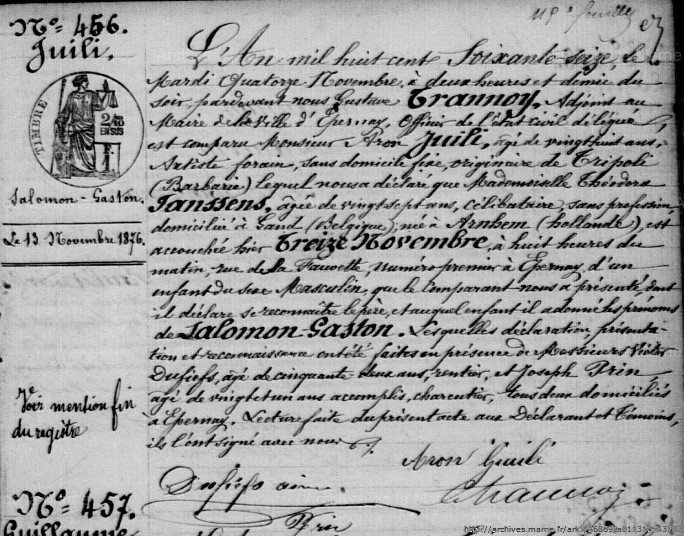 N° 456.
Juili.
TIMBRE
2/10
EN SUS
Salomon-Gaston.
Le 13 Novembre 1876.
Voir mention fin
du registre
L'An mil huit cent Soixante seize, le
Mardi Quatorze Novembre, à deux heures et demie du
soir, pardevant nous Gustave Trannoy, Adjoint au
Maire de la Ville d'Epernay, Officier de l'état civil délégué,
est comparu Monsieur Aron Juili, âgé de vingt huit ans,
Artiste forain, sans domicile fixe, originaire de Tripoli
(Barbarie) Lequel nous a déclaré que Mademoiselle Théodora
Janssens, âgée de vingt sept ans, célibataire, sans profession,
domiciliée à Gand (Belgique), née à Arnhem (hollande), est
accouchée hier Treize Novembre, à huit heures du
matin, rue de la Fauvette, numéro premier à Epernay, d'un
enfant du sexe Masculin, que le Comparant nous a présenté, dont
il déclare se reconnaître le père, et auquel enfant il a donné les prénoms
de Salomon-Gaston. Lesquelles déclaration, présenta-
tion et reconnaissance ont été faites en présence de Messieurs Victor
Dufiefs, âgé de cinquante deux ans, rentier, et Joseph Prin
âgé de vingt et un ans accomplis, charcutier, tous deux domiciliés
à Epernay. Lecture faite du présent acte aux Déclarant et Témoins,
ils l'ont signé avec nous
Aron Guili
Dufiefs
Trannoy
Prin
N° 457.
Guillaume